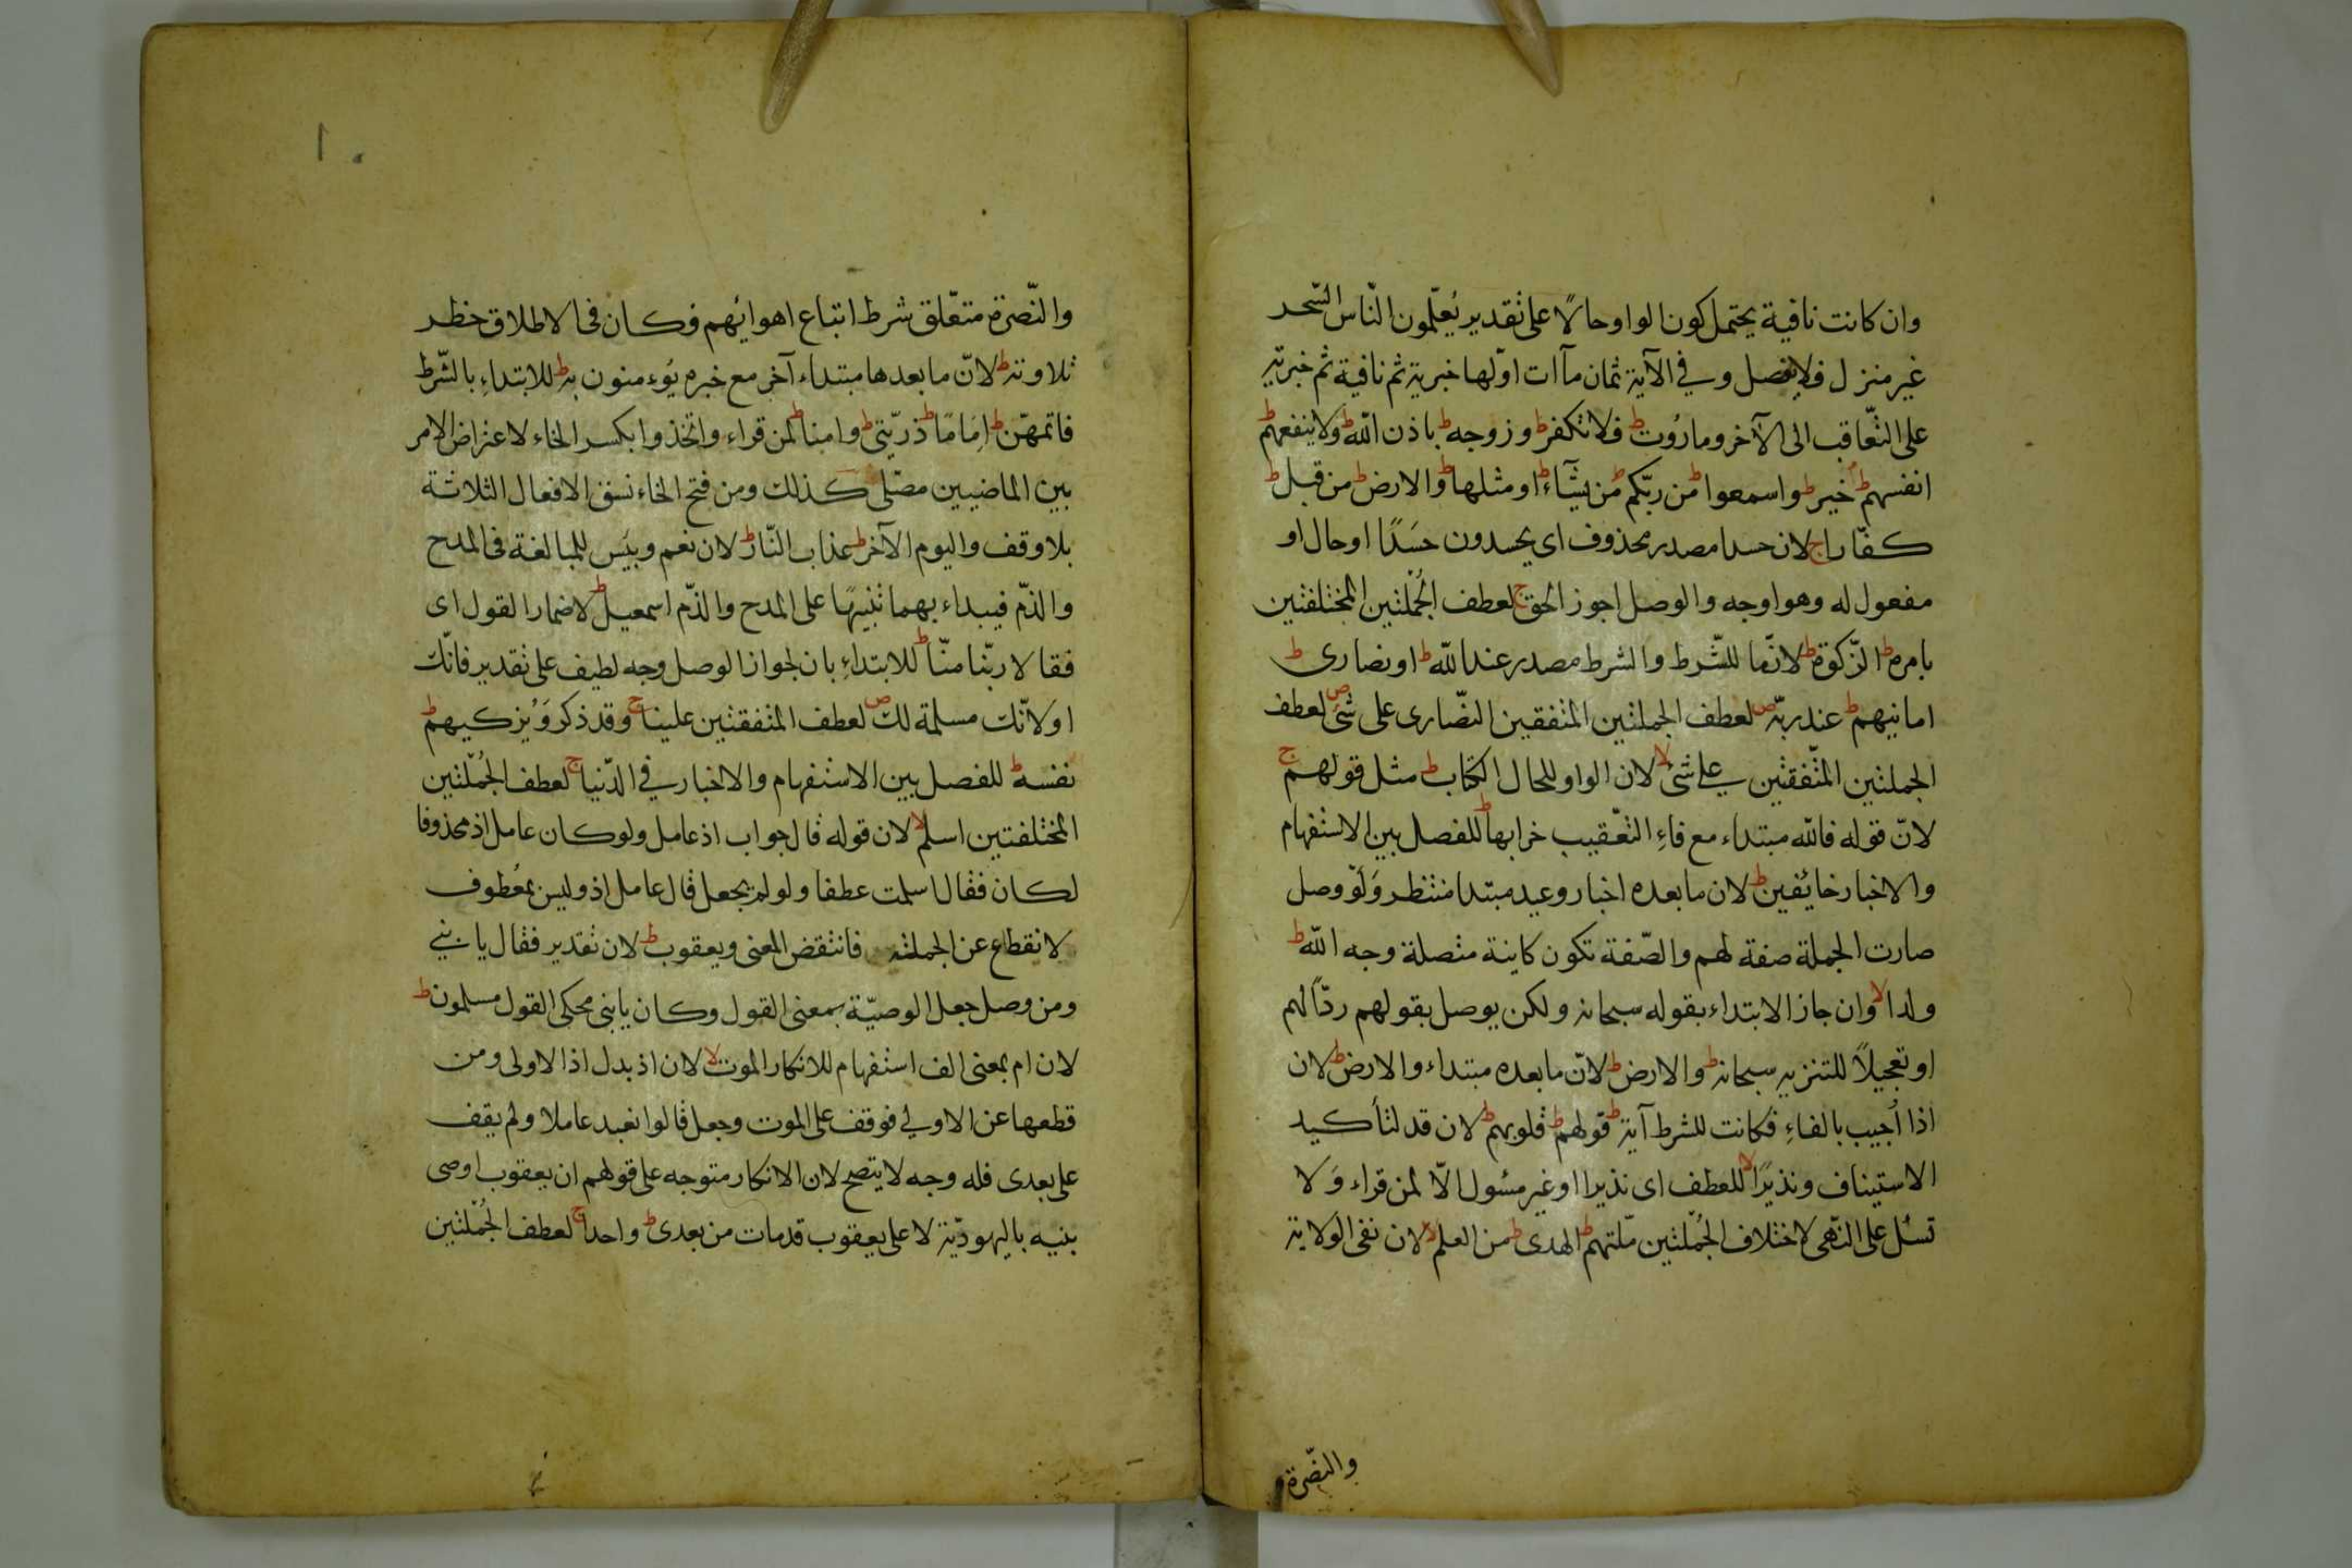 وان كانت نافية يحتمل كون الواو حالاً على تقدير يُعلّمون النّاس السّحر
غير منزل فلا يفصل وفي الآية ثمان مآات اوّلها خبرية ثم نافية ثم خبريّة
على التّعاقب الى الآخر وماروُت ط فلا تكفر ط وزوجه ط باذن الله ط ولا ينفعهم ط
انفسهم ط خير ط واسمعوا ط من ربّكم ط من يشآء ط او مثلها ط والارض ط من قبل ط
كفّارا ج لان حسدا مصدر محذوف اى يحسدون حَسَدًا او حال او
مفعول له وهو اوجه والوصل اجوز الحق ج لعطف الجُملتين المختلفتين
بامره ط الزّكوة ط لانّما للشّرط والشرط مصدر عند الله ط او نصارى ط
امانيهم ط عند ربّه ص لعطف الجملتين المتفقين النّصارى على شئ ص لعطف
الجملتين المتّفقتين على شئ لا لان الواو للحال الكتاب ط مثل قولهم ج
لانّ قوله فالله مبتداء مع فاءِ التعّقيب خرابها ط للفصل بين الاستفهام
والاخبار خايُفين ط لان ما بعده اخبار وعيد مبتدا منتظر وَلَوْ وصل
صارت الجملة صفة لهم والصّفة تكون كاينة متصلة وجه الله ط
ولدا لا وان جاز الابتداء بقوله سبحانه ولكن يوصل بقولهم ردّاً لهم
او تعجيلاً للتنزيه سبحانه ط والارض ط لانّ ما بعده مبتداء والارض ط لان
اذا أجيب بالفاءِ فكانت للشرط آية ط قولهم ط قلوبهم ط لان قد لتأكيد
الاستيناف ونذيرًا لا للعطف اى نذيرا او غير مسُول الاّ لمن قراء وَلا
تسئل على النّهى لاختلاف الجُملتين ملّتهم ط الهدى ط من العلم لا لان نفى الولاية
والنصّرة
والنّصرة متعّلق بشرط اتباع اهوائهم فكان فى الاطلاق خطر
تلاوته ط لانّ ما بعدها مبتداء آخر مع خبره يُوءمنون به ط للابتداءِ بالشّرط
فاتمهّن ط اِمَامًا ط ذرّيّتى ط وامنا ط لمن قراء واتّخذوا بكسر الخاء لاعتراض الامر
بين الماضيين مصلّى كذلك ومن فتح الخاء نسق الافعال الثلاثة
بلا وقف واليوم الآخر ط عذاب النّار ط لان نعم وبئس للمبالغة فى المدح
والذّم فيبداء بهما تنبيهًا على المدح والذّم اسمعيل ط لاضمار القول اى
فقالا ربّنا منّا ط للابتداءِ بان لجواز الوصل وجه لطيف على تقدير فانّك
او لانّك مسلمة لك ص لعطف المتفقتين علينا ج وقد ذكر وَيُزكيهم ط
نفسه ط للفصل بين الاستفهام والاخبار في الدّنيا ج لعطف الجُملّتين
المختلفتين اسلم لا لان قوله قال جواب اذ عامل ولو كان عامل اذ محذوفا
لكان فقال اسلمت عطفا ولو لم يجعل قال عامل اذ وليس بمعُطوف
لانقطاع عن الجملته فانتقض المعنى ويعقوب ط لان تقدير فقال يا بني
ومن وصل جعل الوصيّة بمعنى القول وكان يا بنى محكى القول مسلمون ط
لان ام بمعنى الف استفهام للانكار الموت لا لان اذ بدل اذا الاولى ومن
قطعها عن الاولي فوقف على الموت وجعل قالوا نعبد عاملا ولم يقف
على بعدى فله وجه لا يتضح لان الانكار متوجه على قولهم ان يعقوب اوصى
بنيه باليهوديّة لا على يعقوب قدمات من بعدى ط واحدا ج لعطف الجُملّتين